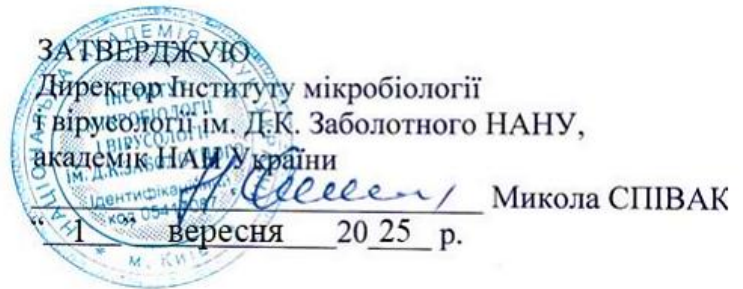 ЗАТВЕРДЖУЮ
Директор Інституту мікробіології
і вірусології ім. Д.К. Заболотного НАНУ,
академік НАН України
Микола СПІВАК
“ 1 ” вересня 20 25 р.